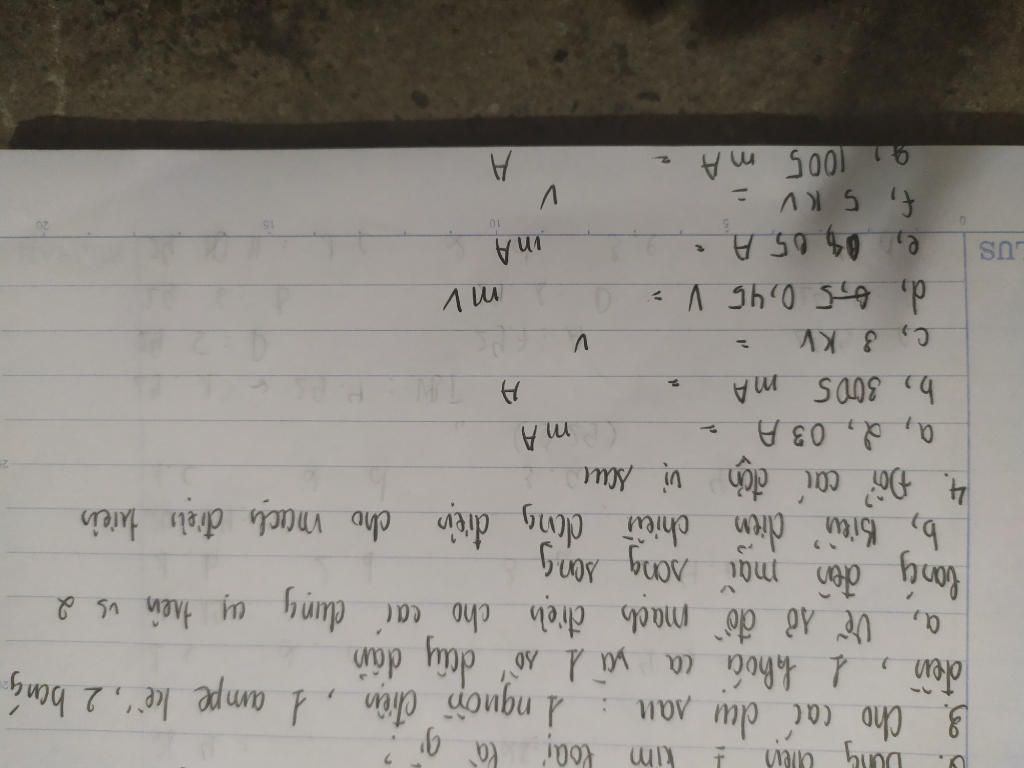 dòng điện kim loại là gì?
3. Cho các dư sau : 1 nguồn điện, 1 ampe kế, 2 bóng
đèn, 1 khoá ca và 1 số dây dẫn
a, Vẽ sơ đồ mạch điện cho các dụng cụ trên vs 2
bóng đèn mắc song song
b, Biểu diễn chiều dòng điện cho mạch điện trên
4. Đổi các đơn vị sau
a, 2,03 A = mA
b, 3005 mA = A
c, 3 KV = V
d, 0,45 V = mV
e, A = mA
LUS 0 10 15 20
f, 5 KV = V
g, 1005 mA = A